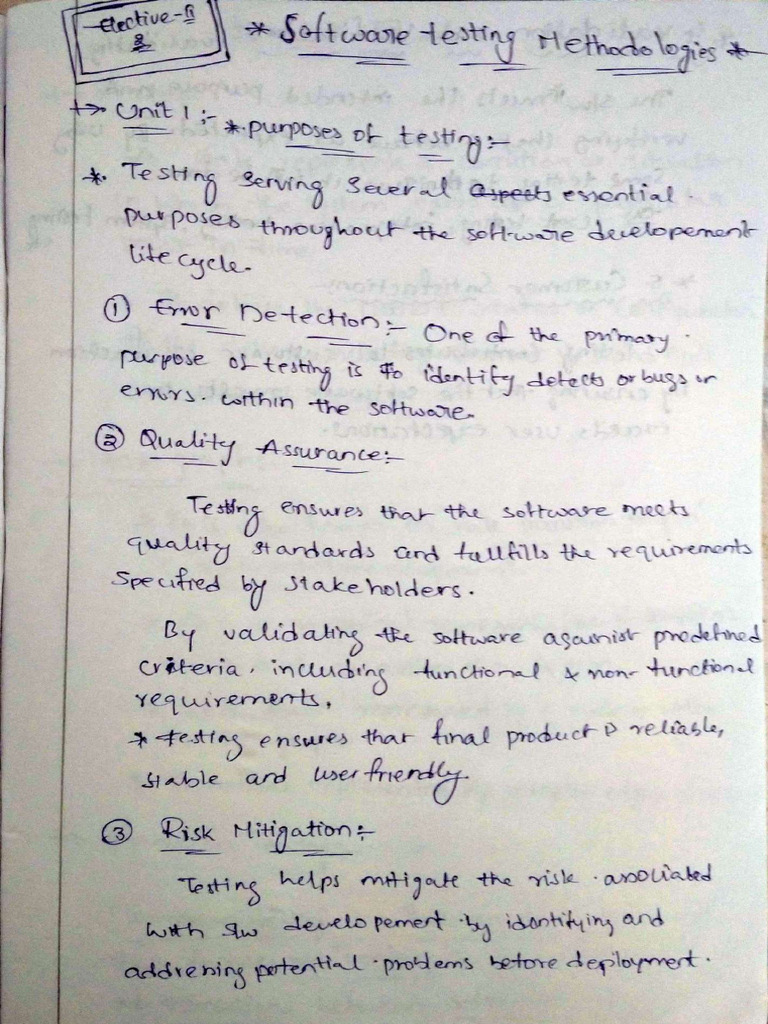 Elective-II
2
* Software testing Methodologies *
+> Unit 1 :- * purposes of testing:-
*. Testing serving several aspects essential
purposes throughout the software developement
life cycle.
① Error Detection:- One of the primary
purpose of testing is to identify detects or bugs or
errors. within the software.
② Quality Assurance:-
Testing ensures that the software meets
quality standards and fullfills the requirements
specified by stakeholders.
By validating the software against predefined
criteria, including functional & non-functional
requirements,
* testing ensures that final product is reliable,
stable and user friendly.
③ Risk Mitigation:-
Testing helps mitigate the risk associated
with s/w developement by identifying and
addressing potential problems before deployment.